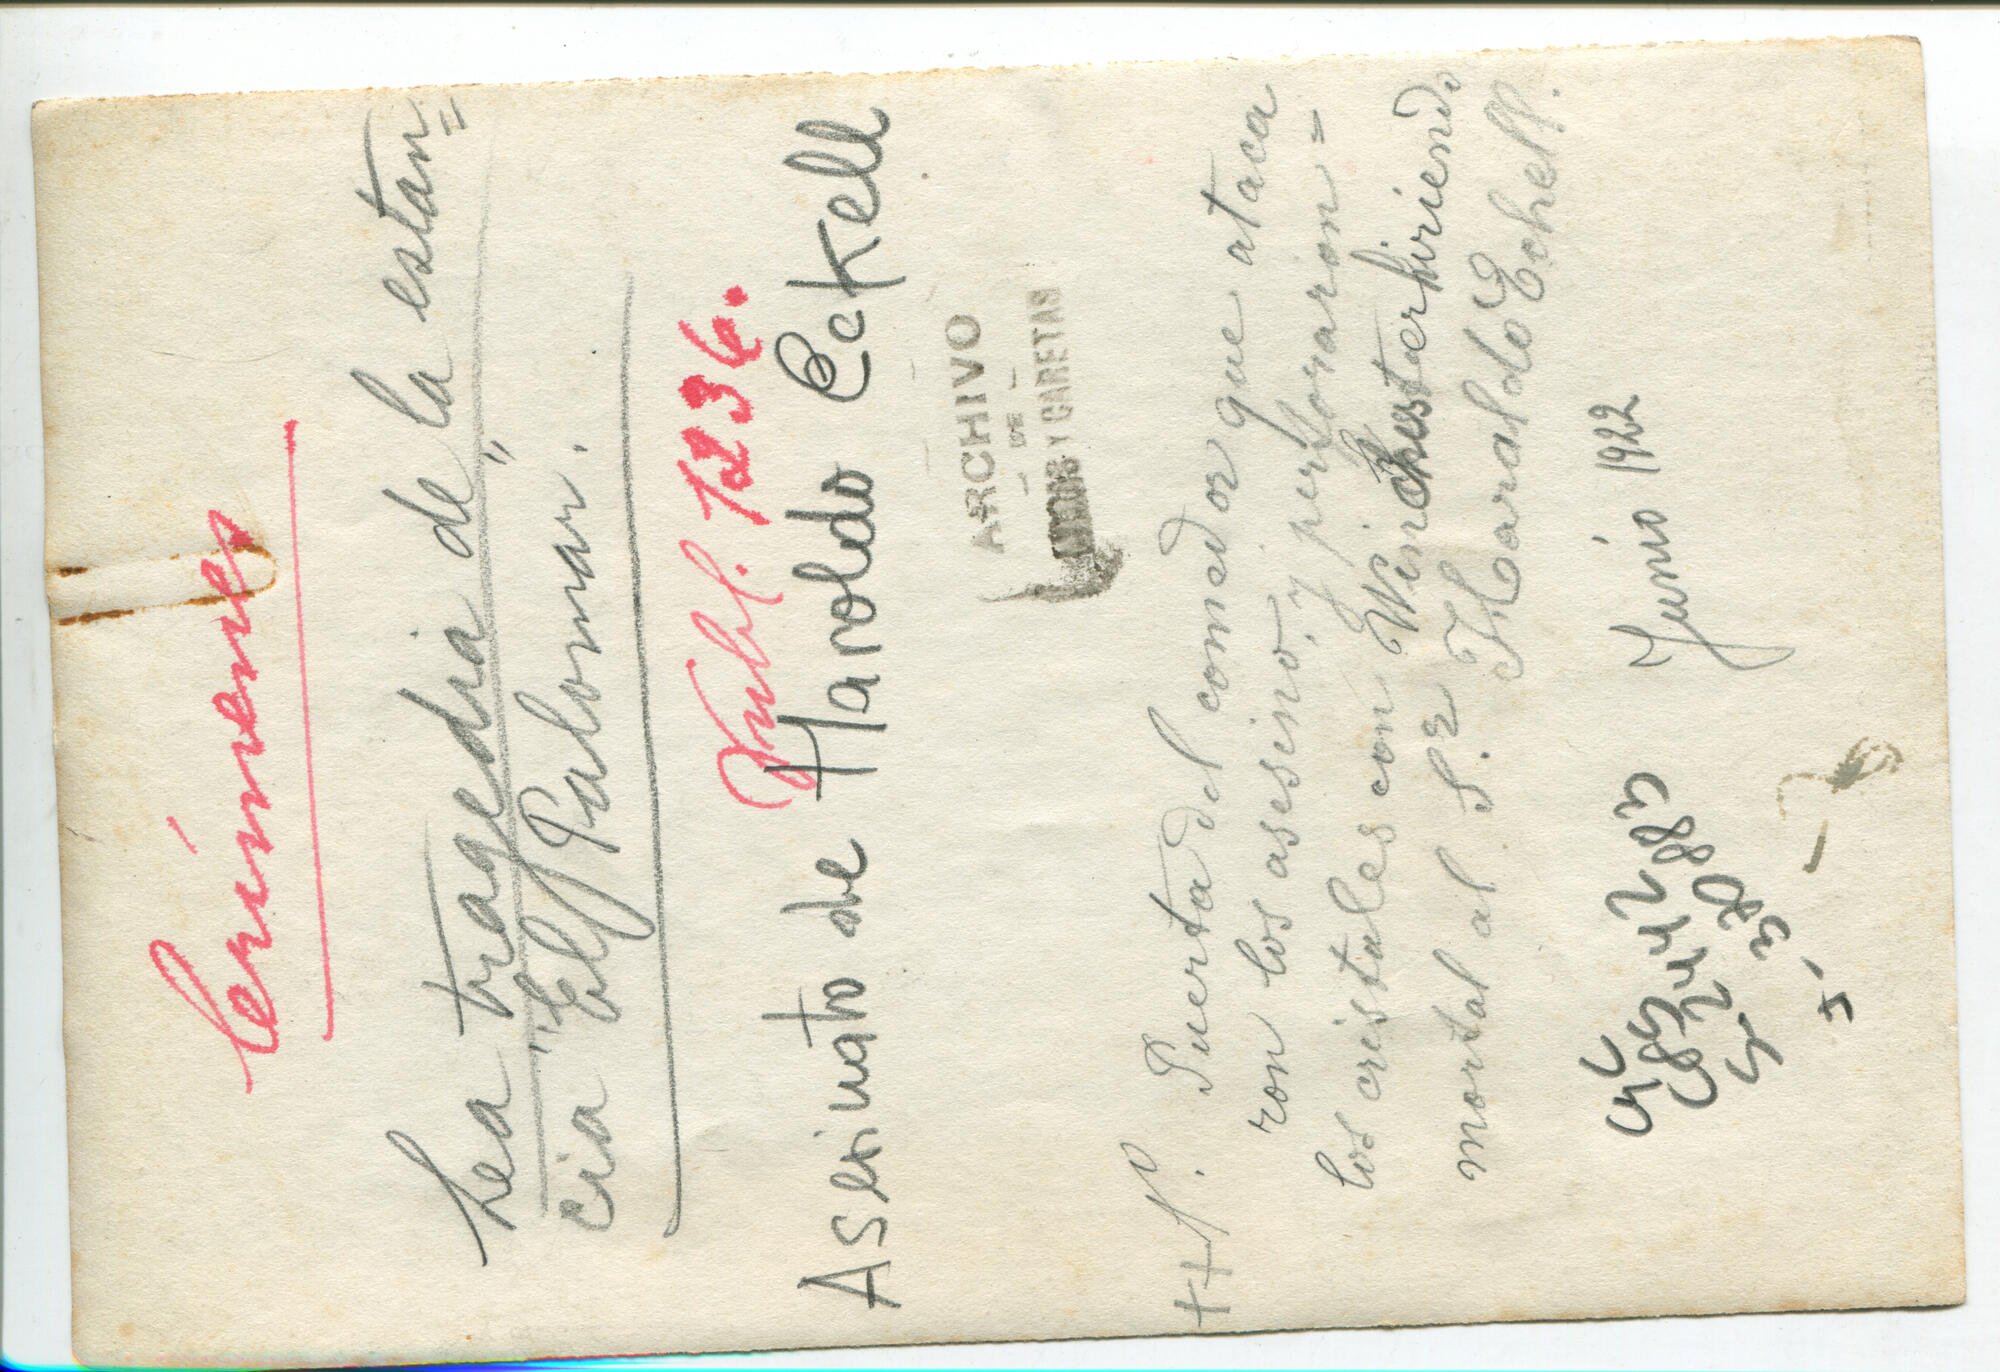 Crímenes
La tragedia de la estan=
cia "El Palomar".
Publ. 1236.
Asesinato de Haroldo Eckell
ARCHIVO
DE
CARAS Y CARETAS
Puerta del comedor que ataca
ron los asesino, y perforarion=
los cristales con Winchester hiriendo
mortal al Sr Haraldo Echell.
Junio 1922